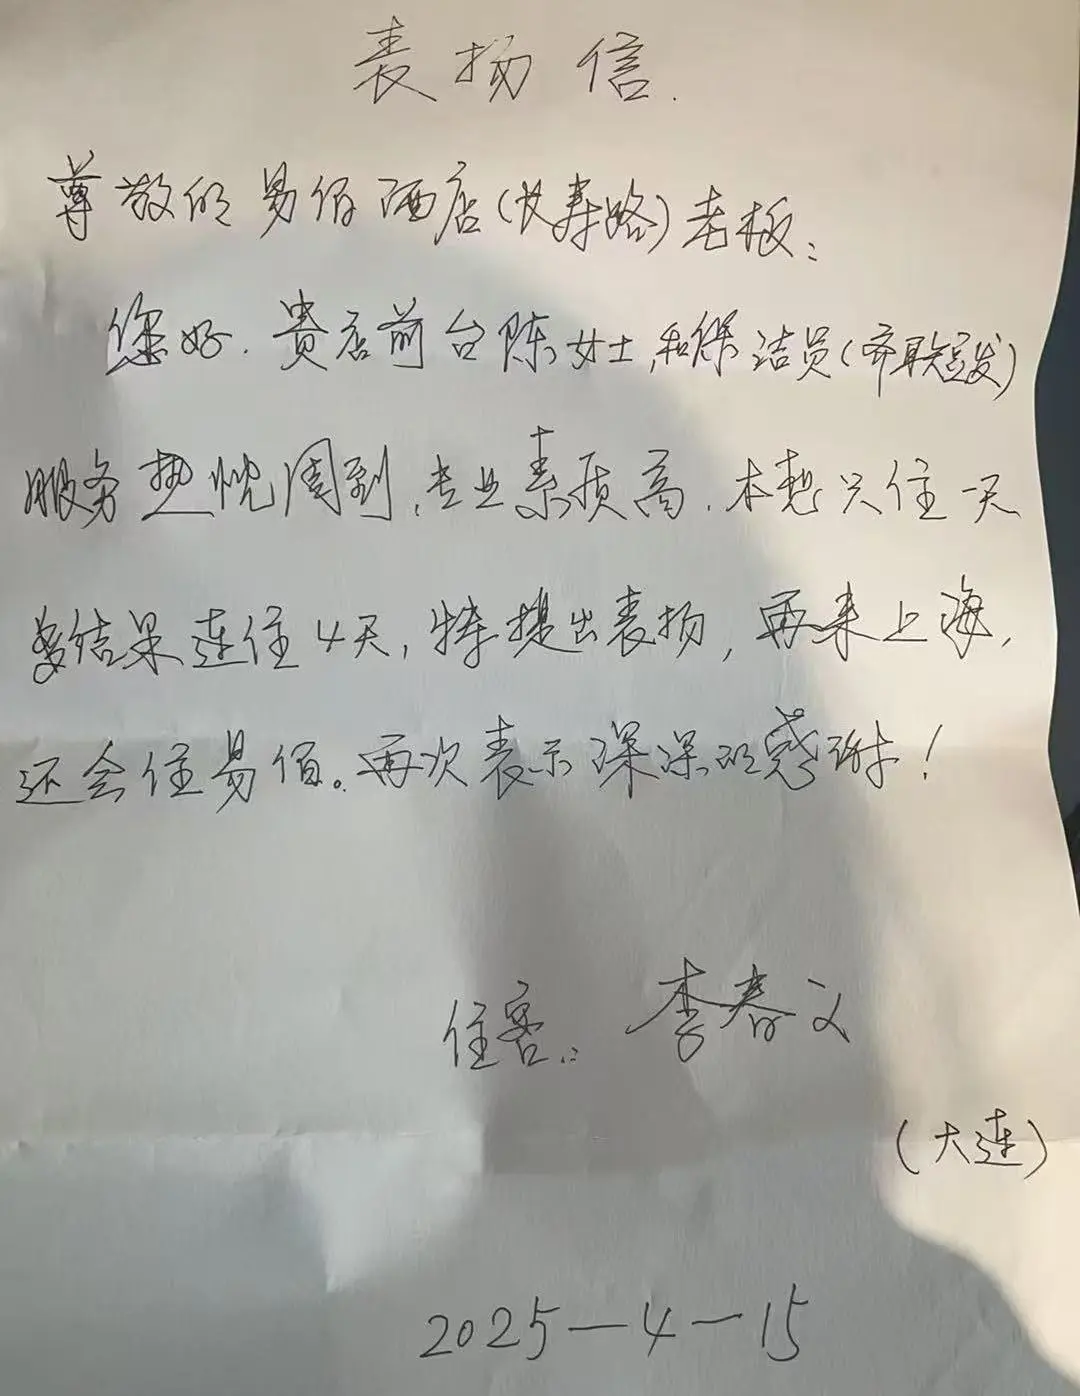 表扬信.
尊敬的易佰酒店(长寿路)老板:
您好.贵店前台陈女士,和保洁员(齐耳短发)
服务热忱周到,专业素质高.本想只住一天
结果连住4天,特提出表扬,再来上海,
还会住易佰。再次表示深深的感谢!
住客: 李春文
(大连)
2025—4—15